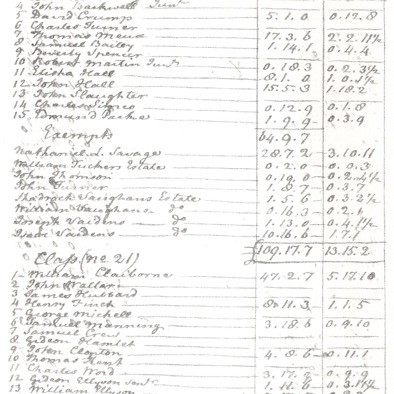 4 John Backwell Junr
5 David Crump 5.1.0 0.12.8
6 Charles Turner
7 Thomas Meux 17.3.6 2.2.11½
8 Samuel Bailey 1.14.1 0.4.4
9 Beverly Spencer
10 Robert Martin Junr 0.18.3 0.2.3½
11 Elisha Hall 8.1.0
12 John Hall 15.5.3 1.18.2
13 John Slaughter
14 Charles 0.12.9 0.1.8
15 Edmund 1.9.9 0.3.9
Exempts 64.9.7
Nathaniel L. Savage 28.7.2 3.10.11
William Estate 0.2.0 0.0.3
John Thomson 0.19.0 0.2.4½
John Turner 1.8.7 0.3.7
Shadrack Vaughans Estate 1.5.6 0.3.2½
William Vaughans do 0.16.3 0.2.1
Joseph Vaidens do 1.13.0 0.4.1½
Isaac Vaidens do 10.16.6 1.7.1
109.17.7 13.15.2
Class (No 21)
1 William Claiborne 47.2.7 5.17.10
2 John Wallar
3 James Hubbard
4 Henry Finch 8.11.3 1.1.5
5 George Michell
6 Samuel Manning 3.18.6 0.9.10
7 Samuel Crew
8 Gideon Hamlet
9 John Clayton 4.8.6 0.11.1
10 Thomas Kemp
11 Charles Word 3.17.9 0.9.9
12 Gideon Ellyson Senr 1.11.6 0.3.11½
13 William Ellyson